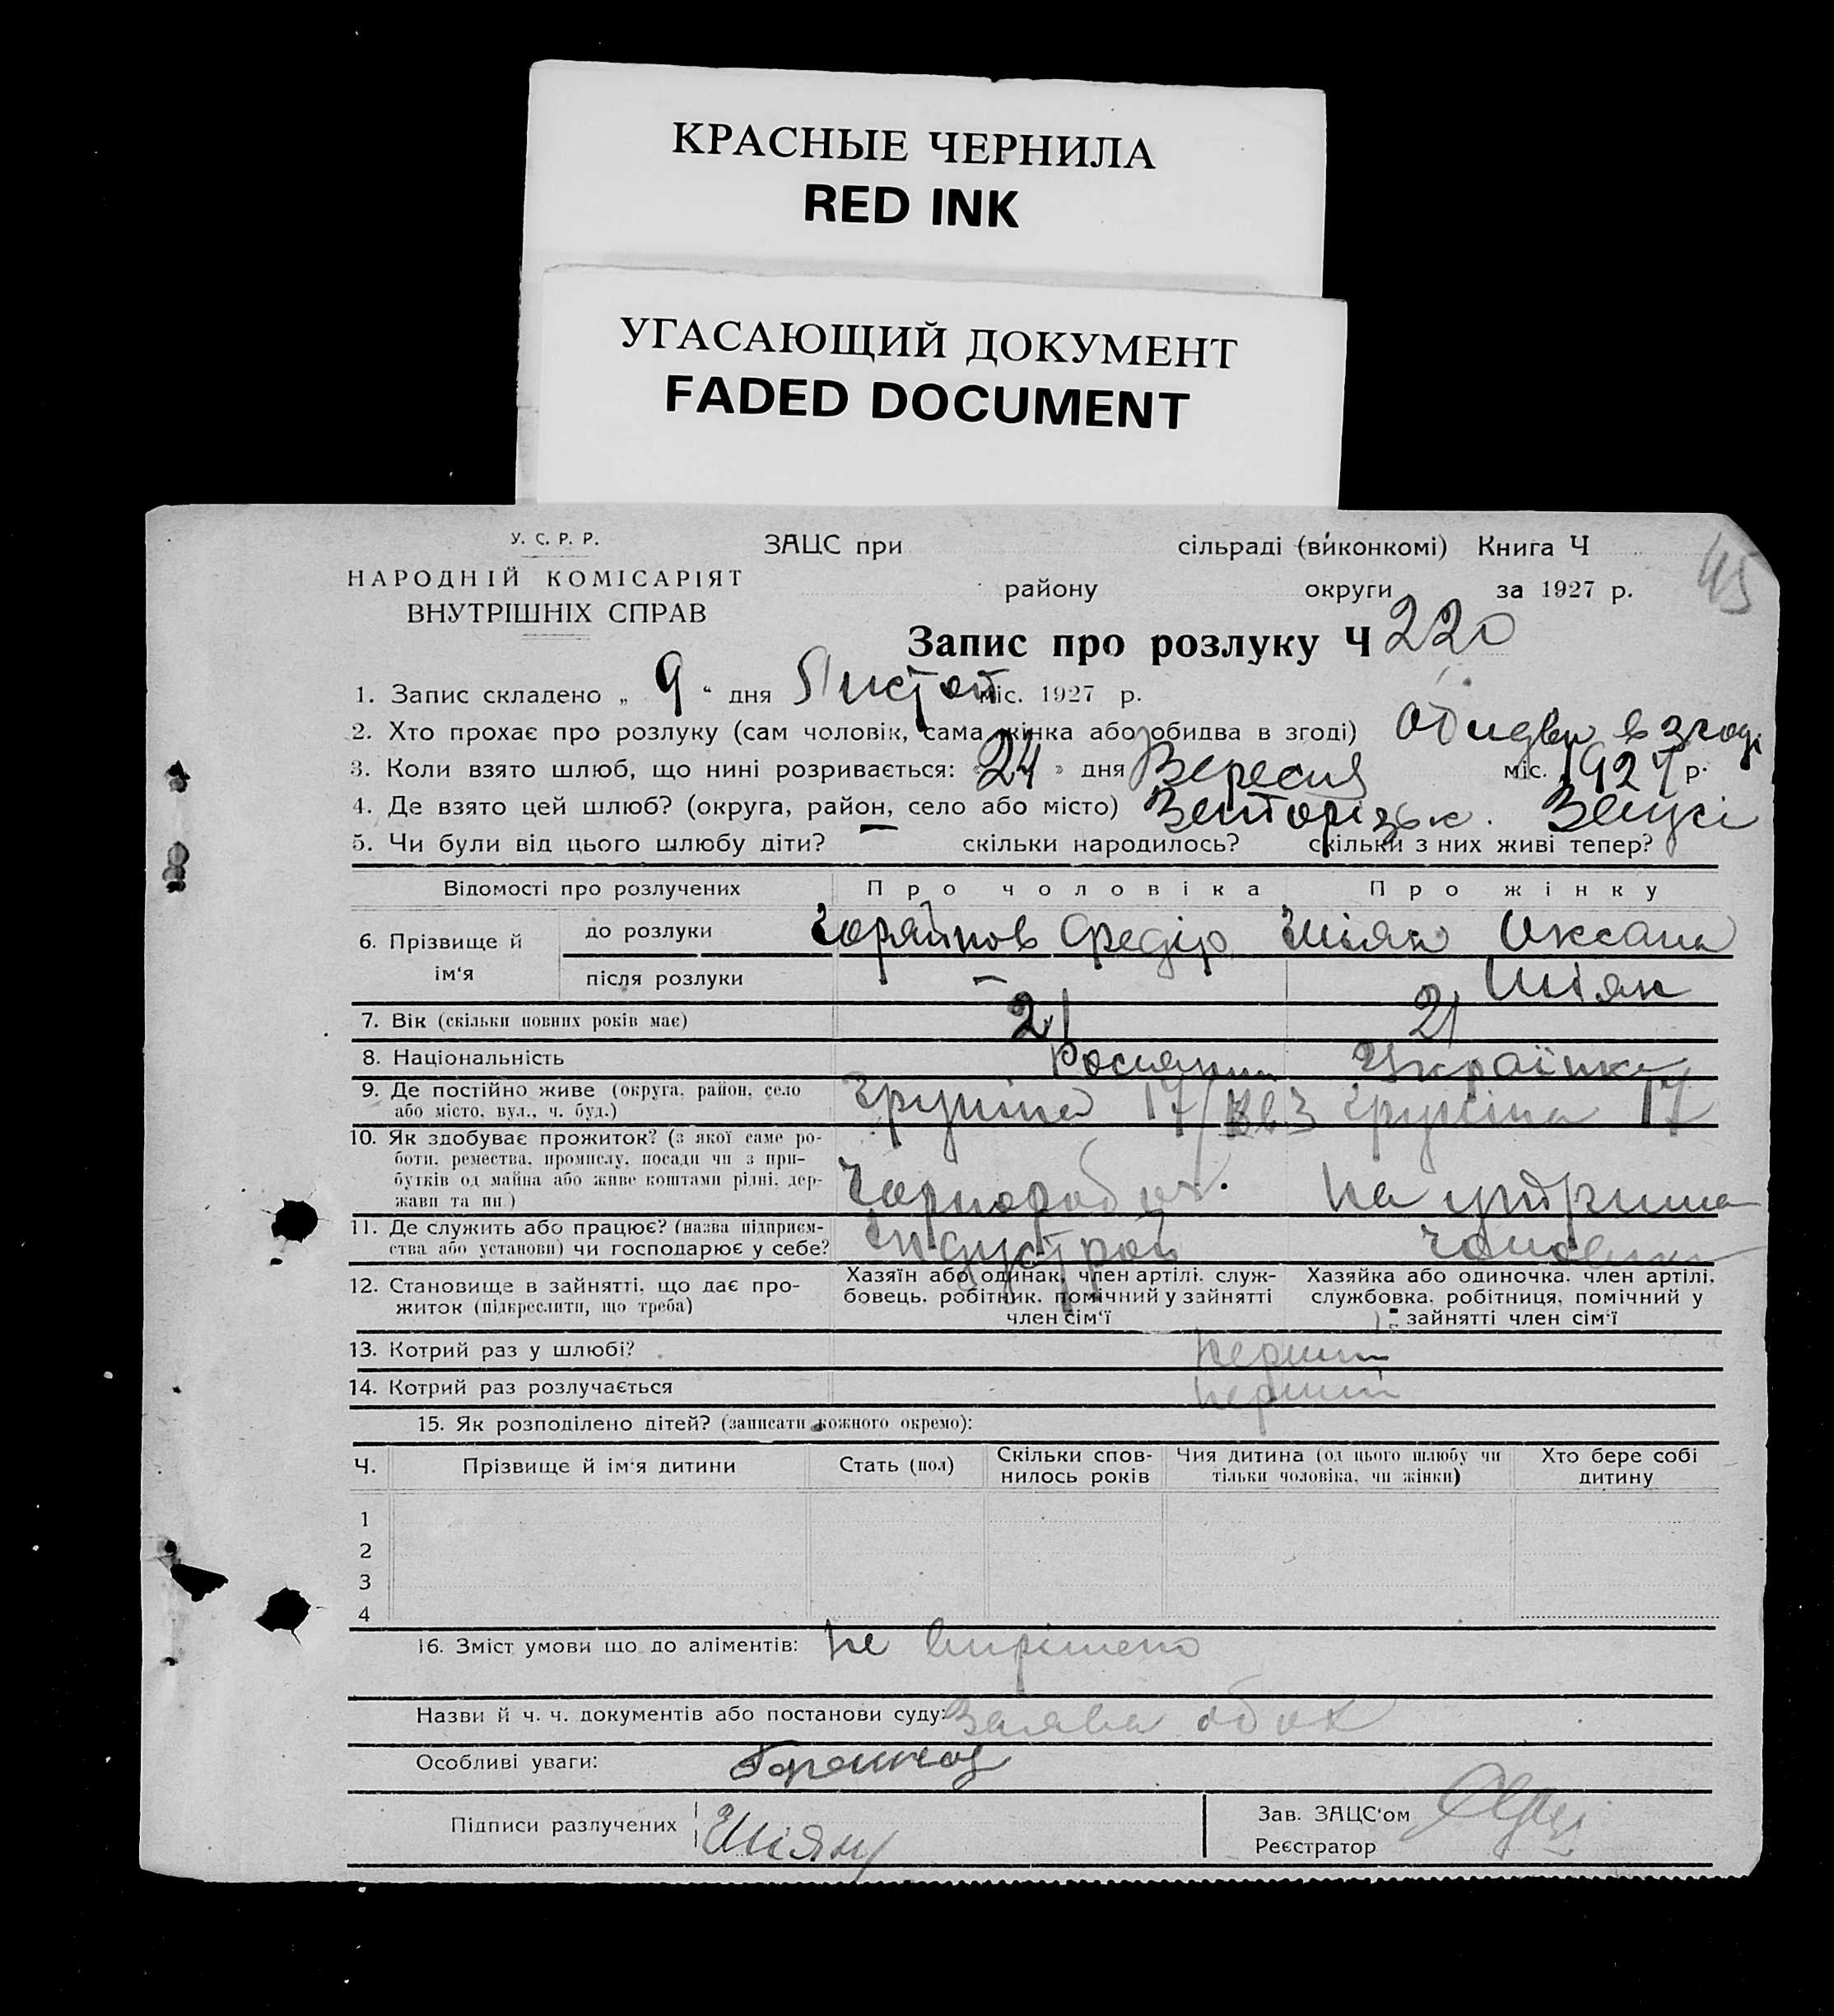 КРАСНЫЕ ЧЕРНИЛА
RED INK
УГАСАЮЩИЙ ДОКУМЕНТ
FADED DOCUMENT
У. С. Р. Р.
НАРОДНІЙ КОМІСАРІЯТ
ВНУТРІШНІХ СПРАВ
ЗАЦС при сільраді (виконкомі) Книга Ч
45
району округи за 1927 р.
Запис про розлуку Ч 220
1. Запис складено „ 9 “ дня Листоп міс. 1927 р.
2. Хто прохає про розлуку (сам чоловік, сама жінка або обидва в згоді) Обидва в згоді
3. Коли взято шлюб, що нині розривається: „ 24 “ дня Вересня міс. 1927 р.
4. Де взято цей шлюб? (округа, район, село або місто)
5. Чи були від цього шлюбу діти? — скільки народилось? скільки з них живі тепер?
Відомості про розлучених Про чоловіка Про жінку
6. Прізвище й ім‘я до розлуки Горяйнов Федір Шіян Оксана
після розлуки — Шіян
7. Вік (скільки повних років має) 21 21
8. Національність Росіянин Українка
9. Де постійно живе (округа, район, село або місто, вул., ч. буд.) 17/ кв 3 17
10. Як здобуває прожиток? (з якої саме роботи, ремества, промислу, посади чи з прибутків од майна або живе коштами рідні, держави та ин.) Чорнороб. На утрима
11. Де служить або працює? (назва підприємства або установи) чи господарює у себе? Індустрой чоловіка
12. Становище в зайнятті, що дає прожиток (підкреслити, що треба) Хазяїн або одинак, член артілі, службовець, робітник, помічний у зайнятті член сім‘ї Хазяйка або одиночка, член артілі, службовка, робітниця, помічний у зайнятті член сім‘ї
13. Котрий раз у шлюбі? перший
14. Котрий раз розлучається перший
15. Як розподілено дітей? (записати кожного окремо):
Ч. Прізвище й ім‘я дитини Стать (пол) Скільки сповнилось років Чия дитина (од цього шлюбу чи тільки чоловіка, чи жінки) Хто бере собі дитину
1
2
3
4
16. Зміст умови що до аліментів: не вирішено
Назви й ч. ч. документів або постанови суду: Заява обох
Особливі уваги:
Підписи разлучених Шіян
Зав. ЗАЦС‘ом
Реєстратор